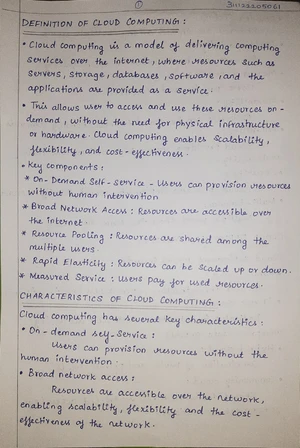 ①
311122205061
DEFINITION OF CLOUD COMPUTING :
• Cloud computing is a model of delivering computing
services over the internet, where resources such as
servers, storage, databases, software, and the
applications are provided as a service.
• This allows user to access and use these resources on-
demand, without the need for physical infrastructure
or hardware. Cloud computing enables scalability,
flexibility, and cost-effectiveness.
• Key components :
* On-Demand Self-Service - Users can provision resources
without human intervention
* Broad Network Access : Resources are accessible over
the internet.
* Resource Pooling : Resources are shared among the
multiple users.
* Rapid Elasticity : Resources can be scaled up or down.
* Measured Service : Users pay for used resources.
CHARACTERISTICS OF CLOUD COMPUTING :
Cloud computing has several key characteristics :
• On-demand self-service :
Users can provision resources without the
human intervention.
• Broad network access :
Resources are accessible over the network,
enabling scalability, flexibility and the cost-
effectiveness of the network.